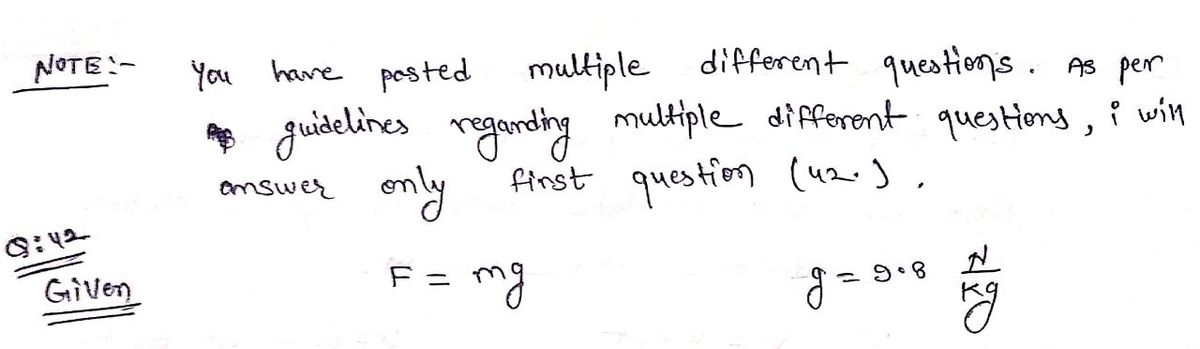 NOTE:- You have posted multiple different questions. As per
guidelines regarding multiple different questions, i will
answer only first question (42.).
Q:42
Given F = mg g = 9.8 N/Kg